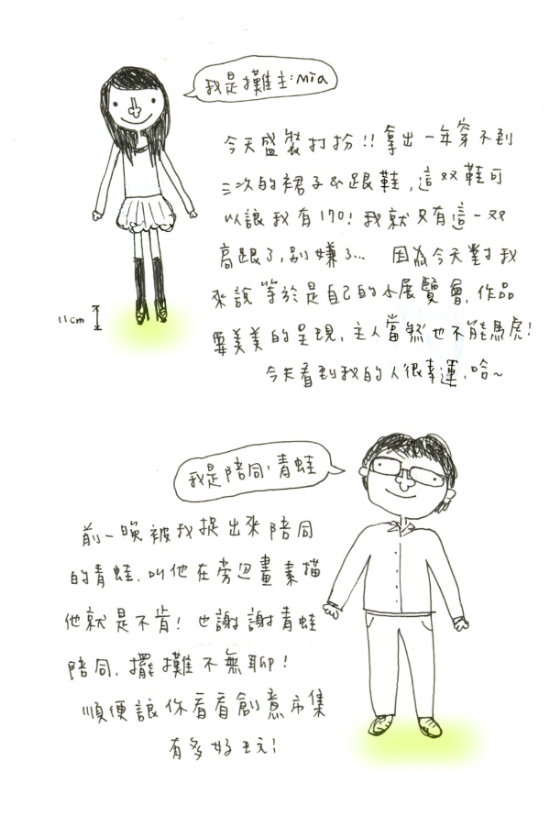 我是攤主:mia
今天盛裝打扮!!拿出一年穿不到
三次的裙子and跟鞋,這双鞋可
以讓我有170!我就只有這一双
高跟了,別嫌了... 因為今天對我
來說等於是自己的小展覽會,作品
要美美的呈現,主人當然也不能馬虎!
今天看到我的人很幸運,哈~
11cm
我是陪同:青蛙
前一晚被我捉出來陪同
的青蛙,叫他在旁边畫素描
他就是不肯!也謝謝青蛙
陪同,擺攤不無聊!
順便讓你看看創意市集
有多好玩!